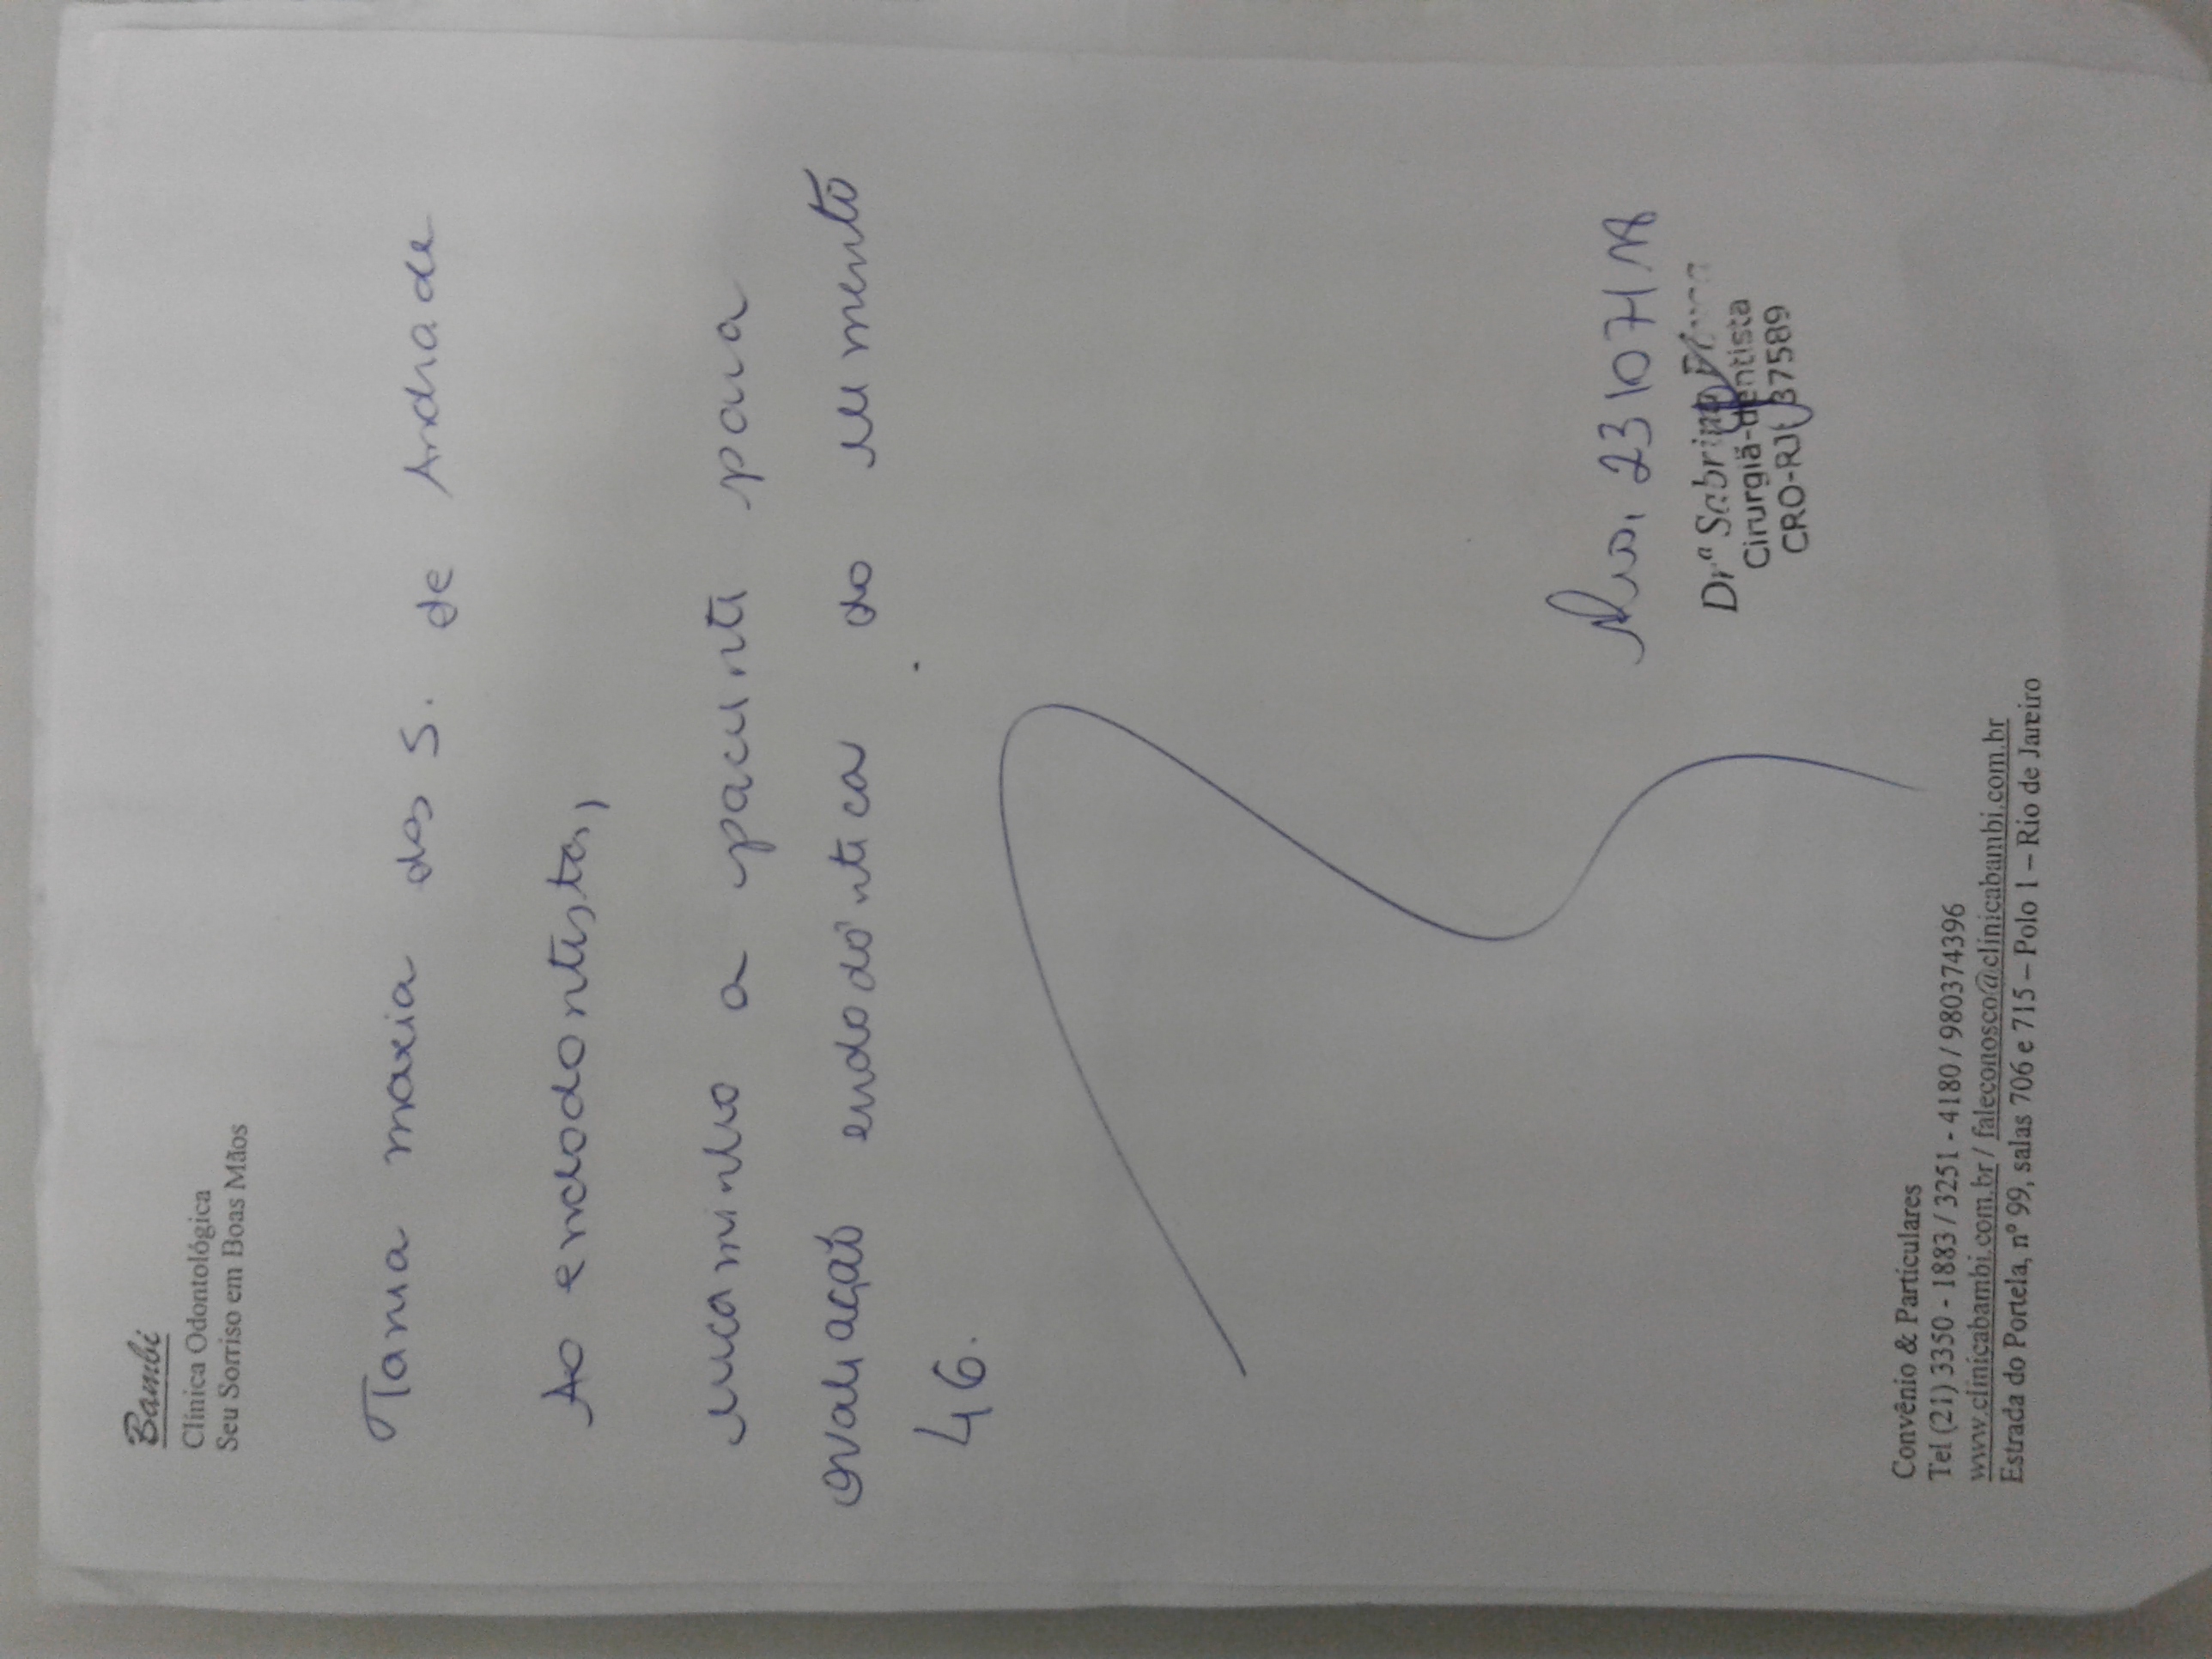 Bambi
Clínica Odontológica
Seu Sorriso em Boas Mãos
Tania maria dos S. de Andrade
Ao endodontista,
encaminho a paciente para
avaliação endodôntica do elemento
46.
23/07/18
Drª Sabrina
Cirurgiã-dentista
CRO-RJ 37589
Convênio & Particulares
Tel (21) 3350 - 1883 / 3251 - 4180 / 980374396
www.clinicabambi.com.br / faleconosco@clinicabambi.com.br
Estrada do Portela, nº 99, salas 706 e 715 – Polo 1 – Rio de Janeiro